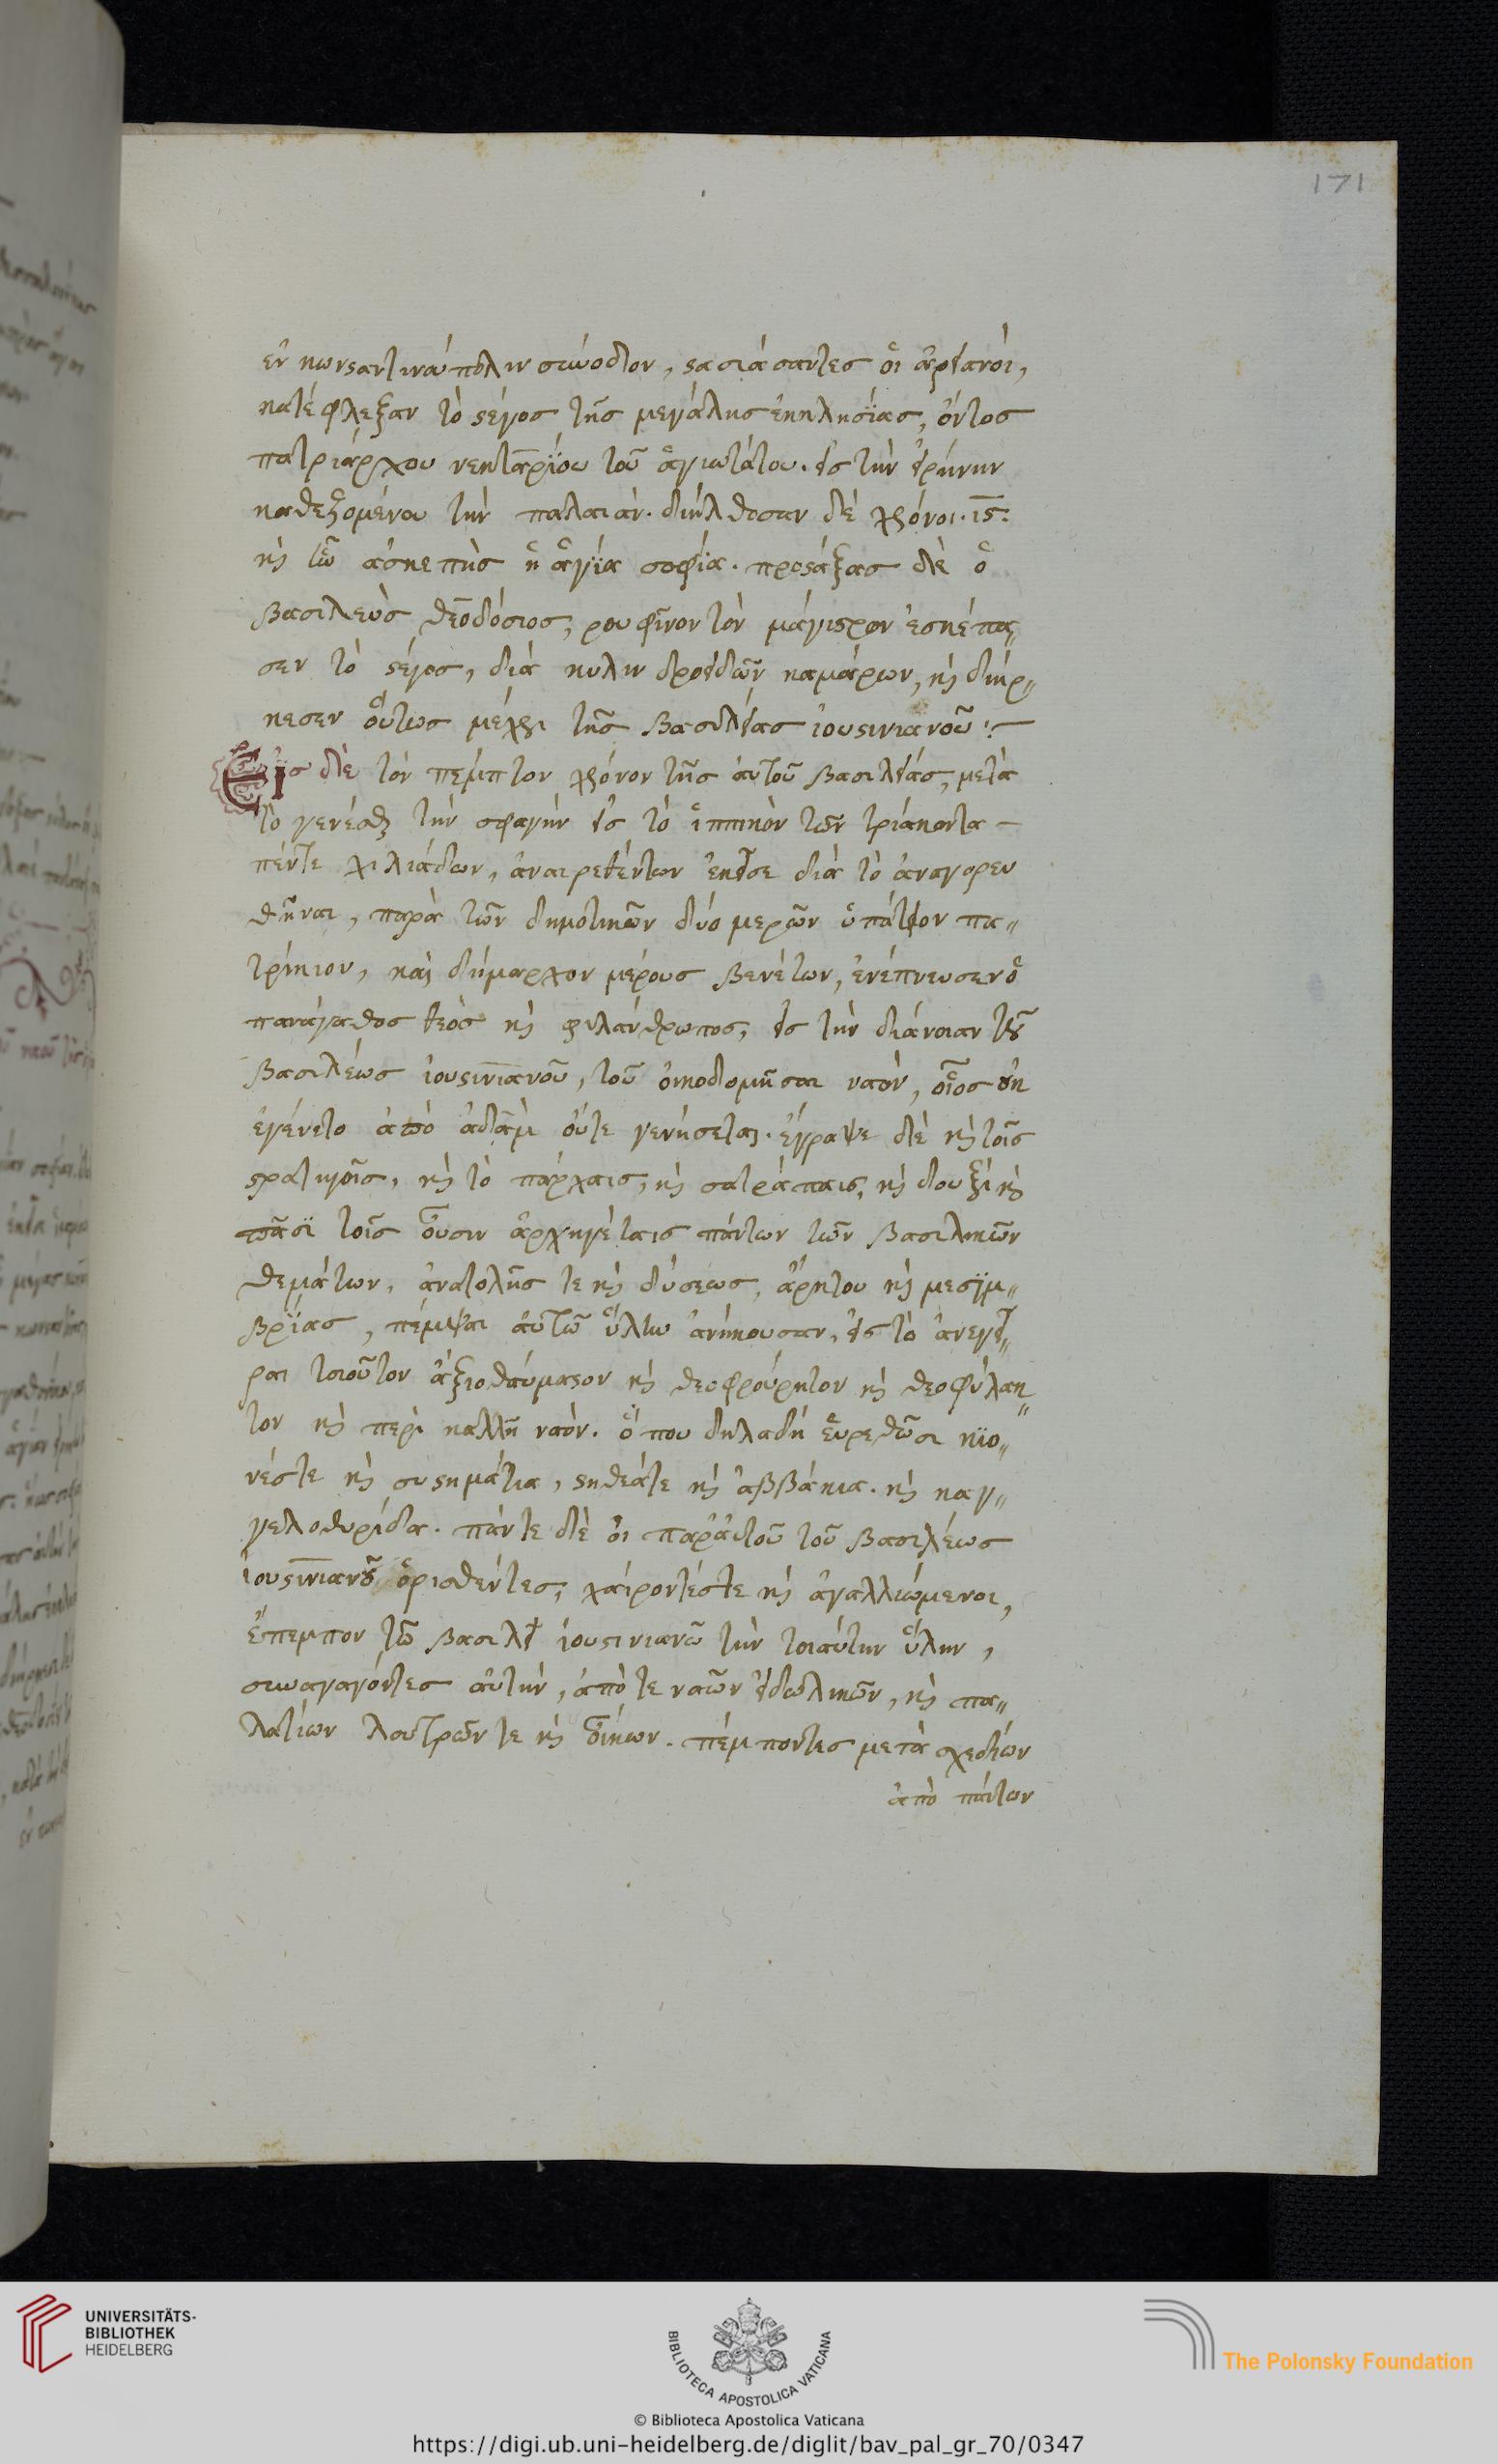 171
ἐν κωνσταντινουπόλιν σύνοδον, στασιάσαντες οἱ ἀρειανοί,
κατέφλεξαν τὸ στέγος τῆς μεγάλης ἐκκλησίας, ὄντος
πατριάρχου νεκταρίου τοῦ ἁγιωτάτου. εἰς τὴν εἰρήνην
καθεζομένου τὴν παλαιάν. διήλθοσαν δὲ χρόνοι. ιϛ:
καὶ ἦν ἀσκεπὴς ἡ ἁγία σοφία. προστάξας δὲ ὁ
βασιλεὺς θεοδόσιος, ρουφῖνον τὸν μάγιστρον ἐσκέπα„
σεν τὸ στέγος, διὰ κυλινδροειδῶν καμάρων, καὶ διήρ„
κεσεν οὕτως μέχρι τῆς βασιλείας ἰουστινιανοῦ:—
Εἰς δὲ τὸν πέμπτον χρόνον τῆς αὐτοῦ βασιλείας, μετὰ
τὸ γενέσθαι τὴν σφαγὴν εἰς τὸ ἱππικὸν τῶν τριάκοντα—
πέντε χιλιάδων, ἀναιρεθέντων ἐκεῖσε διὰ τὸ ἀναγορευ
θῆναι, παρὰ τῶν δημοτικῶν δύο μερῶν ὑπάτειον πα„
τρίκιον, καὶ δήμαρχον μέρους βενέτων, ἐνέπνευσεν ὁ
πανάγαθος θεὸς καὶ φιλάνθρωπος, εἰς τὴν διάνοιαν τοῦ
βασιλέως ἰουστινιανοῦ, τοῦ οἰκοδομῆσαι ναὸν, οἷος οὐκ
ἐγένετο ἀπὸ ἀδὰμ οὔτε γενήσεται. ἔγραψε δὲ καὶ τοῖς
στρατηγοῖς, καὶ τὸ πάρχαις, καὶ σατράπαις, καὶ δουξὶ καὶ
πᾶσι τοῖς οὖσιν ἀρχηγέταις πάντων τῶν βασιλικῶν
θεμάτων, ἀνατολῆς τε καὶ δύσεως, ἄρκτου καὶ μεσημ„
βρίας, πέμψαι αὐτῷ ὕλην ἀνήκουσαν, εἰς τὸ ἀνεγεῖ„
ραι τοιοῦτον ἀξιοθαύμαστον καὶ θεοφρούρητον καὶ θεοφύλακ„
τον καὶ περὶ καλλῆ ναόν. ὅπου δηλαδὴ εὑρεθῶσι κϊο„
νέστε καὶ συστημάτια, στηθεάτε καὶ ἀββάκια. καὶ καγ„
γελοθυρίδα. πάντε δὲ οἱ παρ' αὐτοῦ τοῦ βασιλέως
ἰουστινιανοῦ ὁρισθέντες, χαίροντέστε καὶ ἀγαλλιώμενοι,
ἔπεμπον τῷ βασιλεῖ ἰουστινιανῷ τὴν τοιαύτην ὕλην,
συναγαγόντες αὐτὴν, ἀπό τε ναῶν εἰδωλικῶν, καὶ πα„
λατίων λουτρῶν τε καὶ οἴκων. πέμποντες μετὰ σχεδιῶν
ἀπὸ πάντων
UNIVERSITÄTS-
BIBLIOTHEK
HEIDELBERG
BIBLIOTECA APOSTOLICA VATICANA
The Polonsky Foundation
© Biblioteca Apostolica Vaticana
https://digi.ub.uni-heidelberg.de/diglit/bav_pal_gr_70/0347